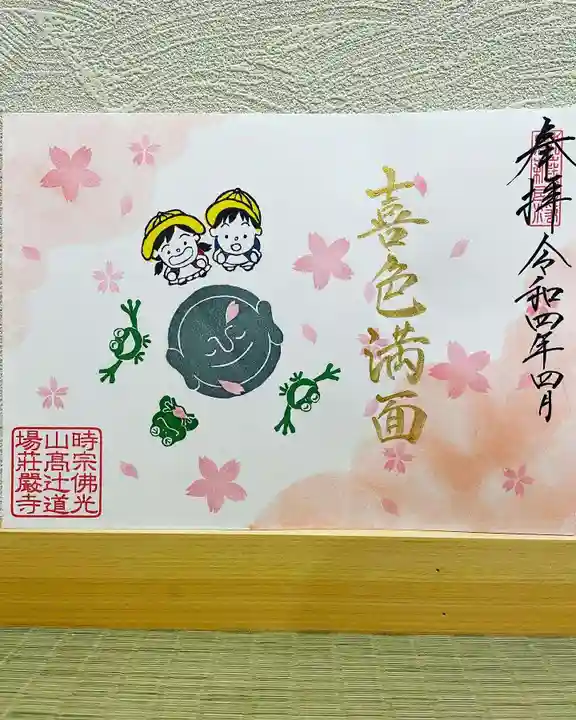 奉拝
令和四年四月
喜色満面
時宗佛光
山高辻道
場莊嚴寺